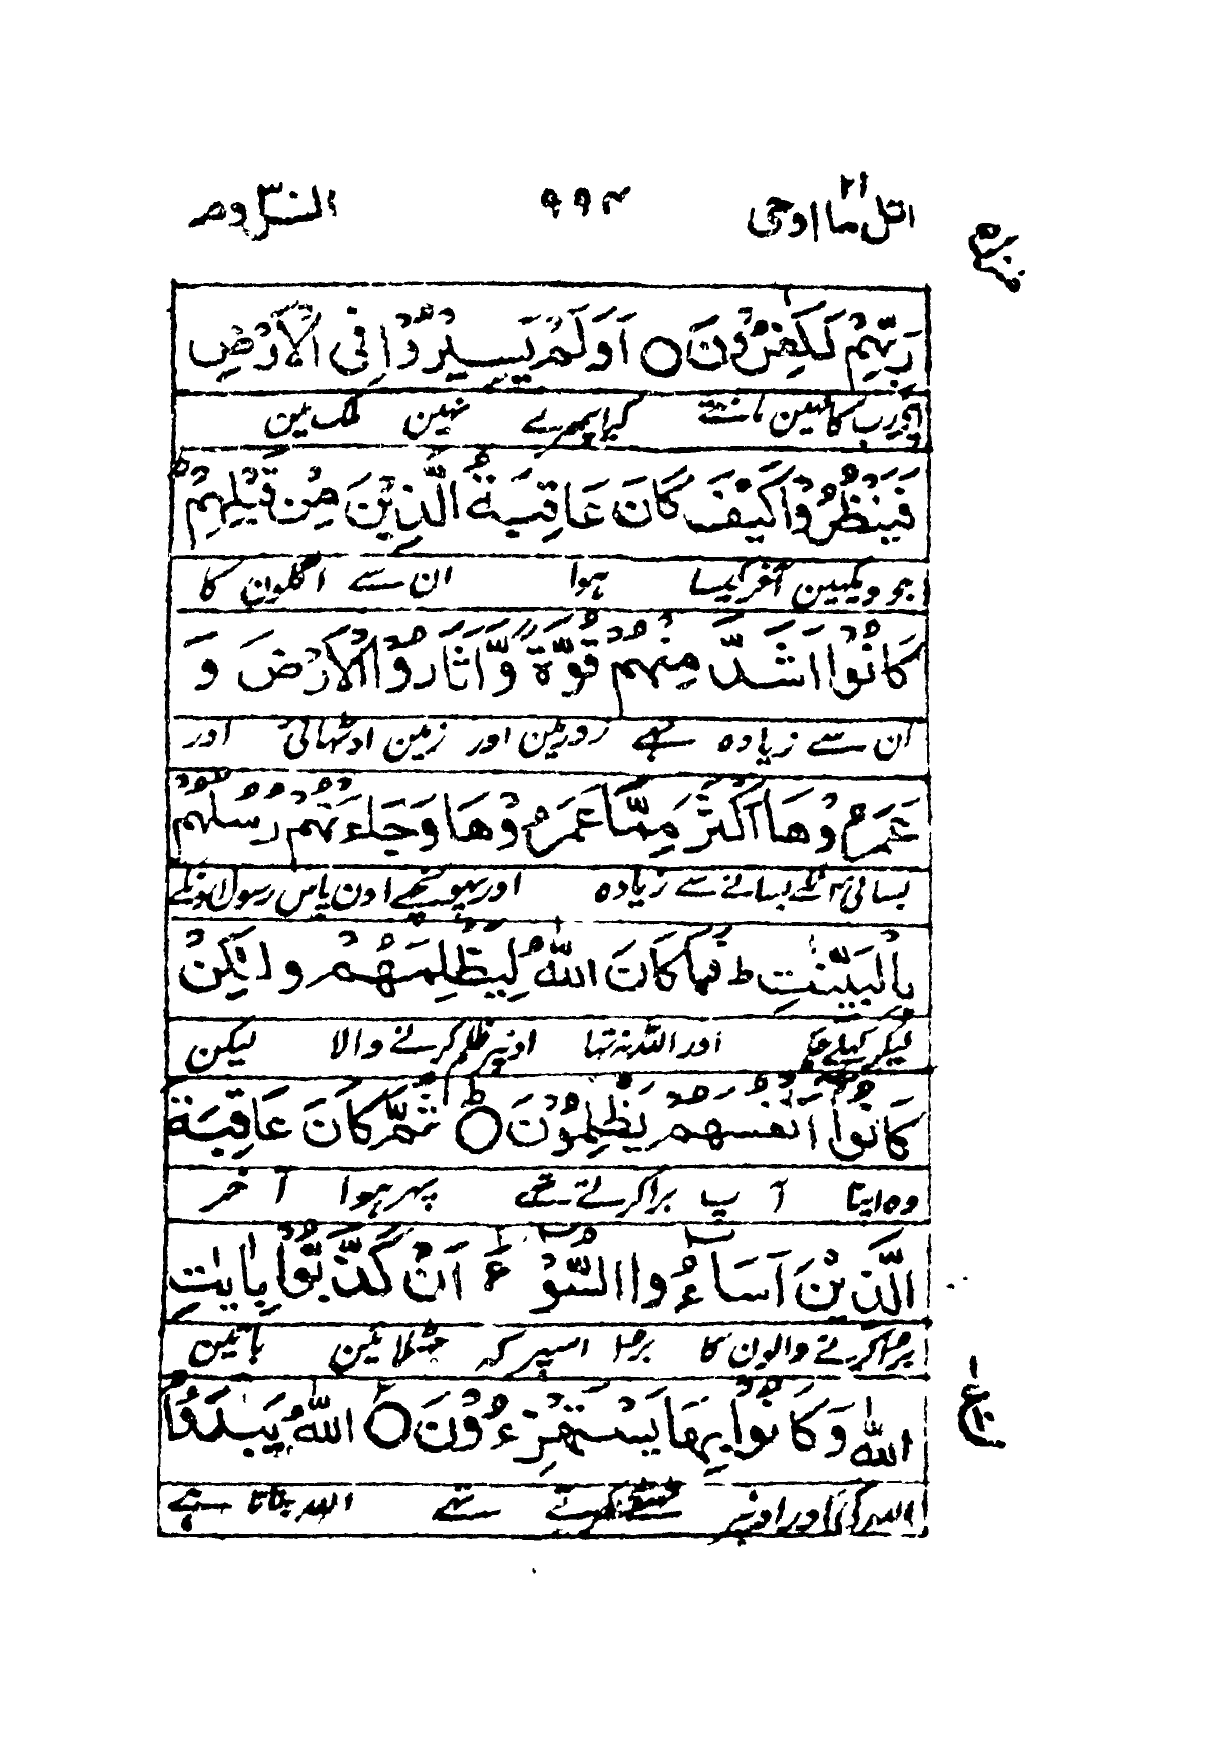 اتل ما اوحی ۲۱ ۹۹۴ الروم ۳۰
رَبِّهِمْ لَكٰفِرُوْنَ ○ اَوَلَمْ يَسِيْرُوْا فِی الْاَرْضِ
اپنے رب کا نہین مانتے کیا پھرے نہین ملک مین
فَيَنْظُرُوْا كَيْفَ كَانَ عَاقِبَةُ الَّذِيْنَ مِنْ قَبْلِهِمْ ؕ
جو دیکھین آخر کیسا ہوا ان سے اگلون کا
كَانُوْا اَشَدَّ مِنْهُمْ قُوَّةً وَّاَثَارُوا الْاَرْضَ وَ
ان سے زیادہ تھے زور مین اور زمین اوٹھائی اور
عَمَرُوْهَا اَكْثَرَ مِمَّا عَمَرُوْهَا وَجَاءَتْهُمْ رُسُلُهُمْ
بسائی انکے بسانے سے زیادہ اور پہونچے اون پاس رسول اونکے
بِالْبَيِّنٰتِ ط فَمَا كَانَ اللّٰهُ لِيَظْلِمَهُمْ وَلٰكِنْ
لیکر کھلے حکم اور اللہ نہ تھا اونپر ظلم کرنے والا لیکن
كَانُوْا اَنْفُسَهُمْ يَظْلِمُوْنَ ○ ثُمَّ كَانَ عَاقِبَةَ
وہ اپنا آپ برا کرتے تھے پھر ہوا آخر
الَّذِيْنَ اَسَاءُوا السُّوْءٰ اَنْ كَذَّبُوْا بِاٰيٰتِ
برا کرنے والون کا برا اسپر کہ جھٹلائین باتین
اللّٰهِ وَكَانُوْا بِهَا يَسْتَهْزِءُوْنَ ○ اَللّٰهُ يَبْدَؤُا
اللہ کی اور اونپر ٹھٹھے کرتے تھے اللہ بناتا ہے
ع